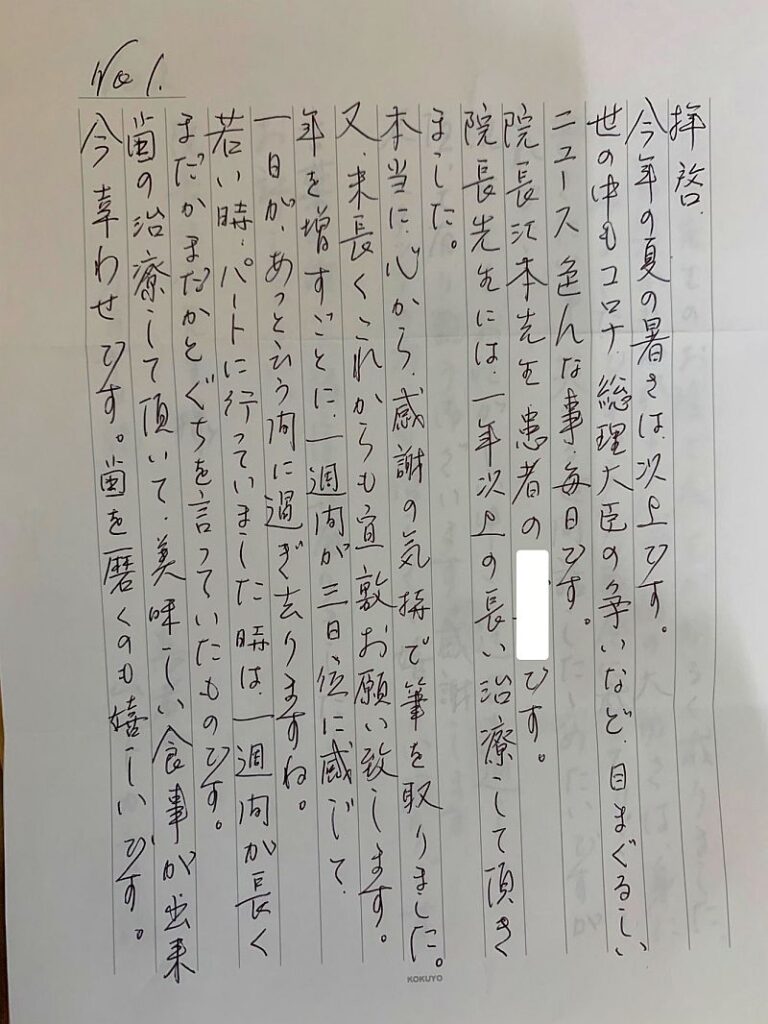 No 1.
拝啓
今年の夏の暑さは、以上です。
世の中もコロナ、総理大臣の争いなど、目まぐるしい
ニュース色んな事、毎日です。
院長江本先生、患者の です。
院長先生には、一年以上の長い治療して頂き
ました。
本当に、心から、感謝の気持で筆を取りました。
又、末長くこれからも宜敷お願い致します。
年を増すごとに、一週間が三日位に感じて、
一日が、あっと言う間に過ぎ去りますね。
若い時、パートに行っていました時は、一週間が長く
まだかまだかとぐちを言っていたものです。
歯の治療して頂いて、美味しい食事が出来
今幸わせです。歯を磨くのも嬉しいです。
KOKUYO